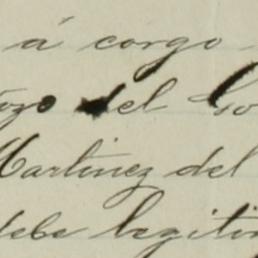 á cargo
del
Martinez del
debe legiti